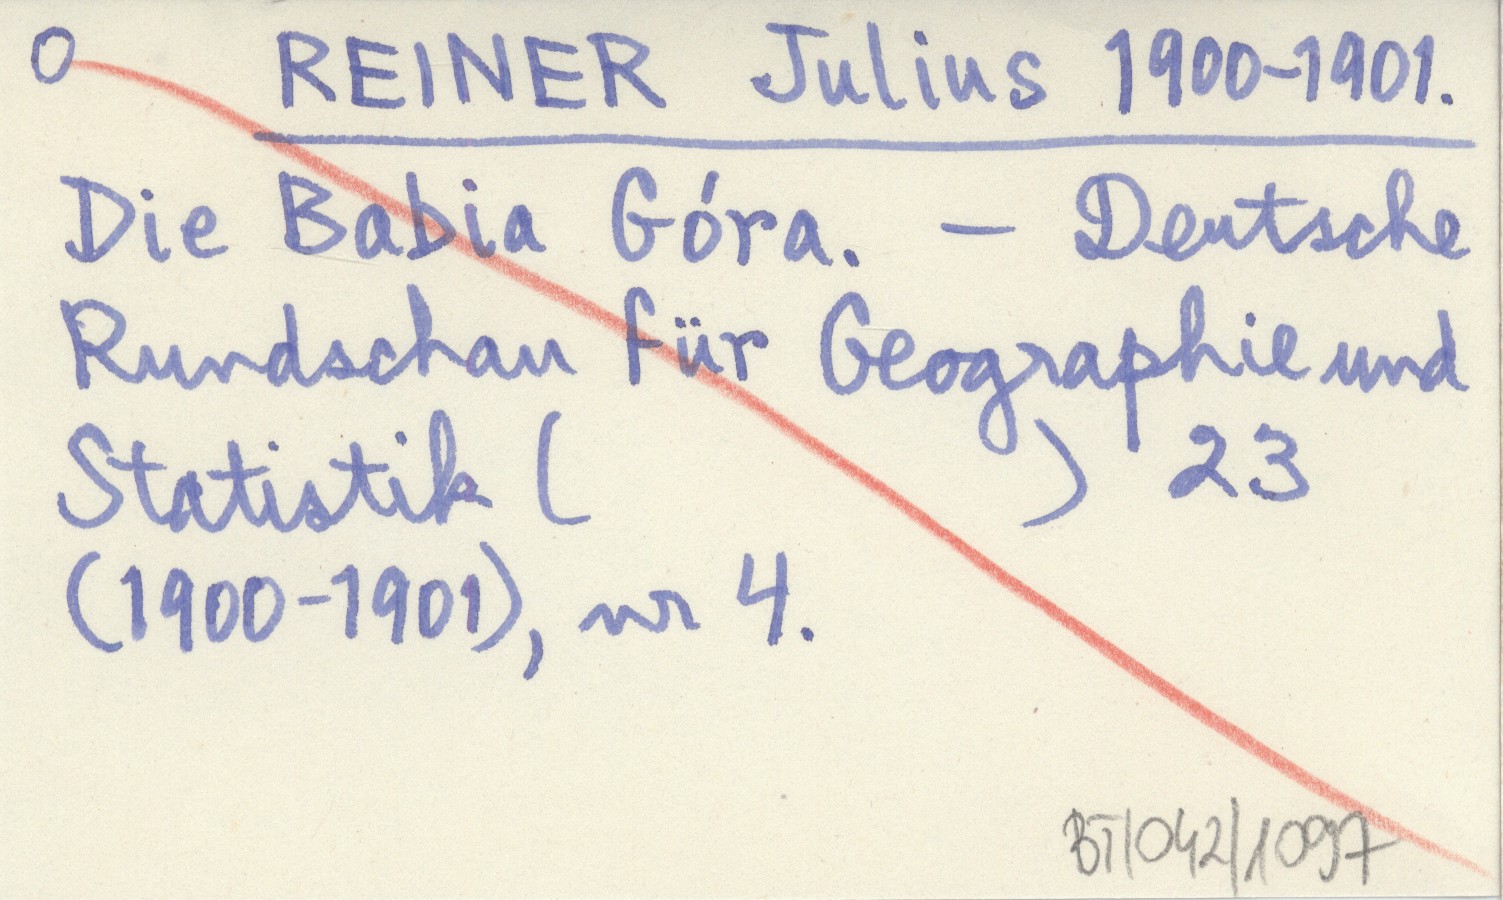 O REINER Julius 1900-1901.
Die Babia Góra. — Deutsche
Rundschau für Geographie und
Statistik (                    ) 23
(1900-1901), nr 4.
BT/042/1097